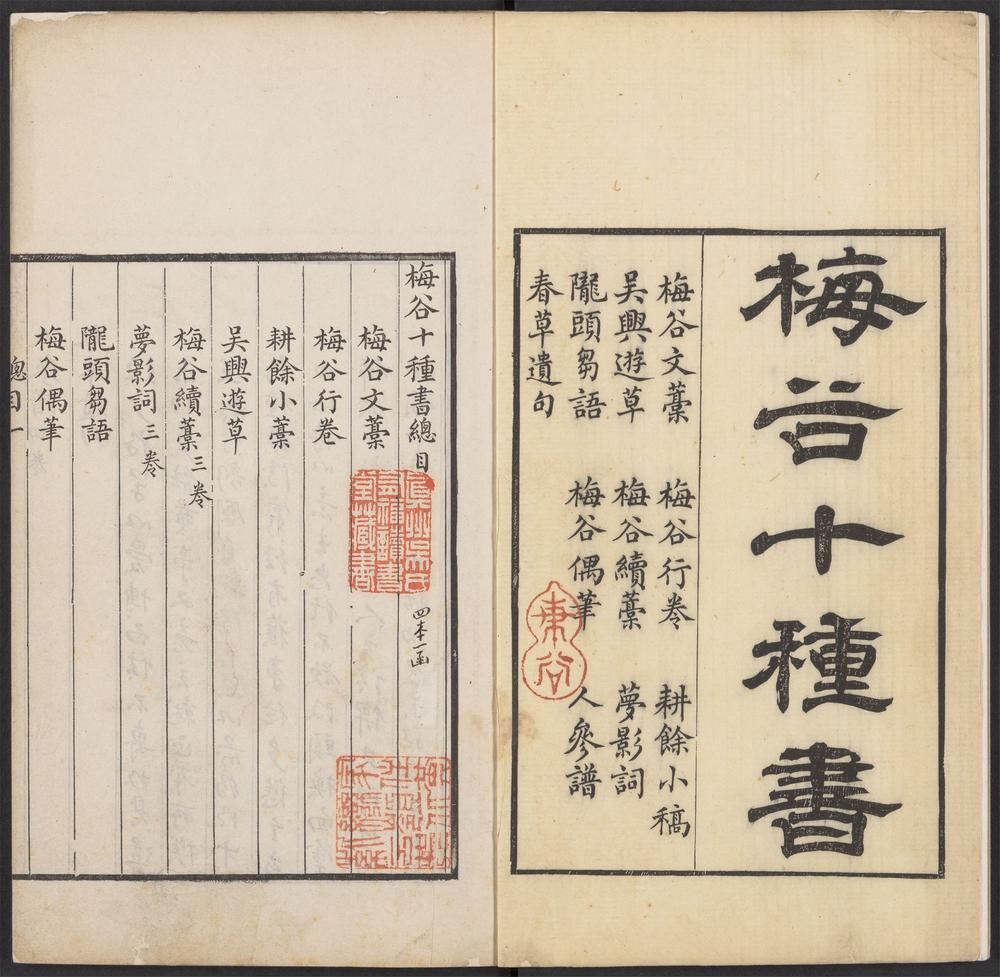 梅谷十種書
梅谷文藁　梅谷行卷　耕餘小稿
吳興遊草　梅谷續藁　夢影詞
隴頭芻語　梅谷偶筆　人參譜
春草遺句
梅谷十種書總目
四本一函
梅谷文藁
梅谷行卷
耕餘小藁
吳興遊草
梅谷續藁三卷
夢影詞三卷
隴頭芻語
梅谷偶筆
總目一
真州吳氏
有福讀書
堂藏書